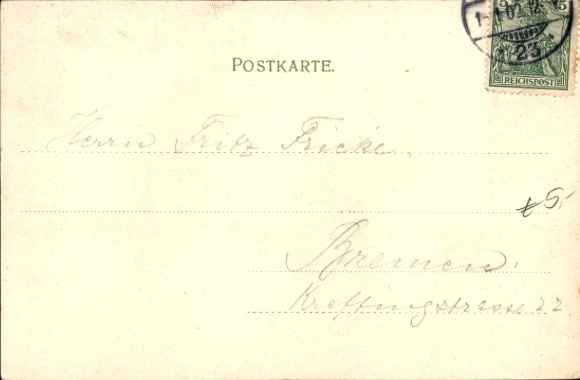 1-1 02 12-
5
23
REICHSPOST
POSTKARTE.
Herrn Fritz Fricke
5,-
Bremen.
Kreftingstrasse 22